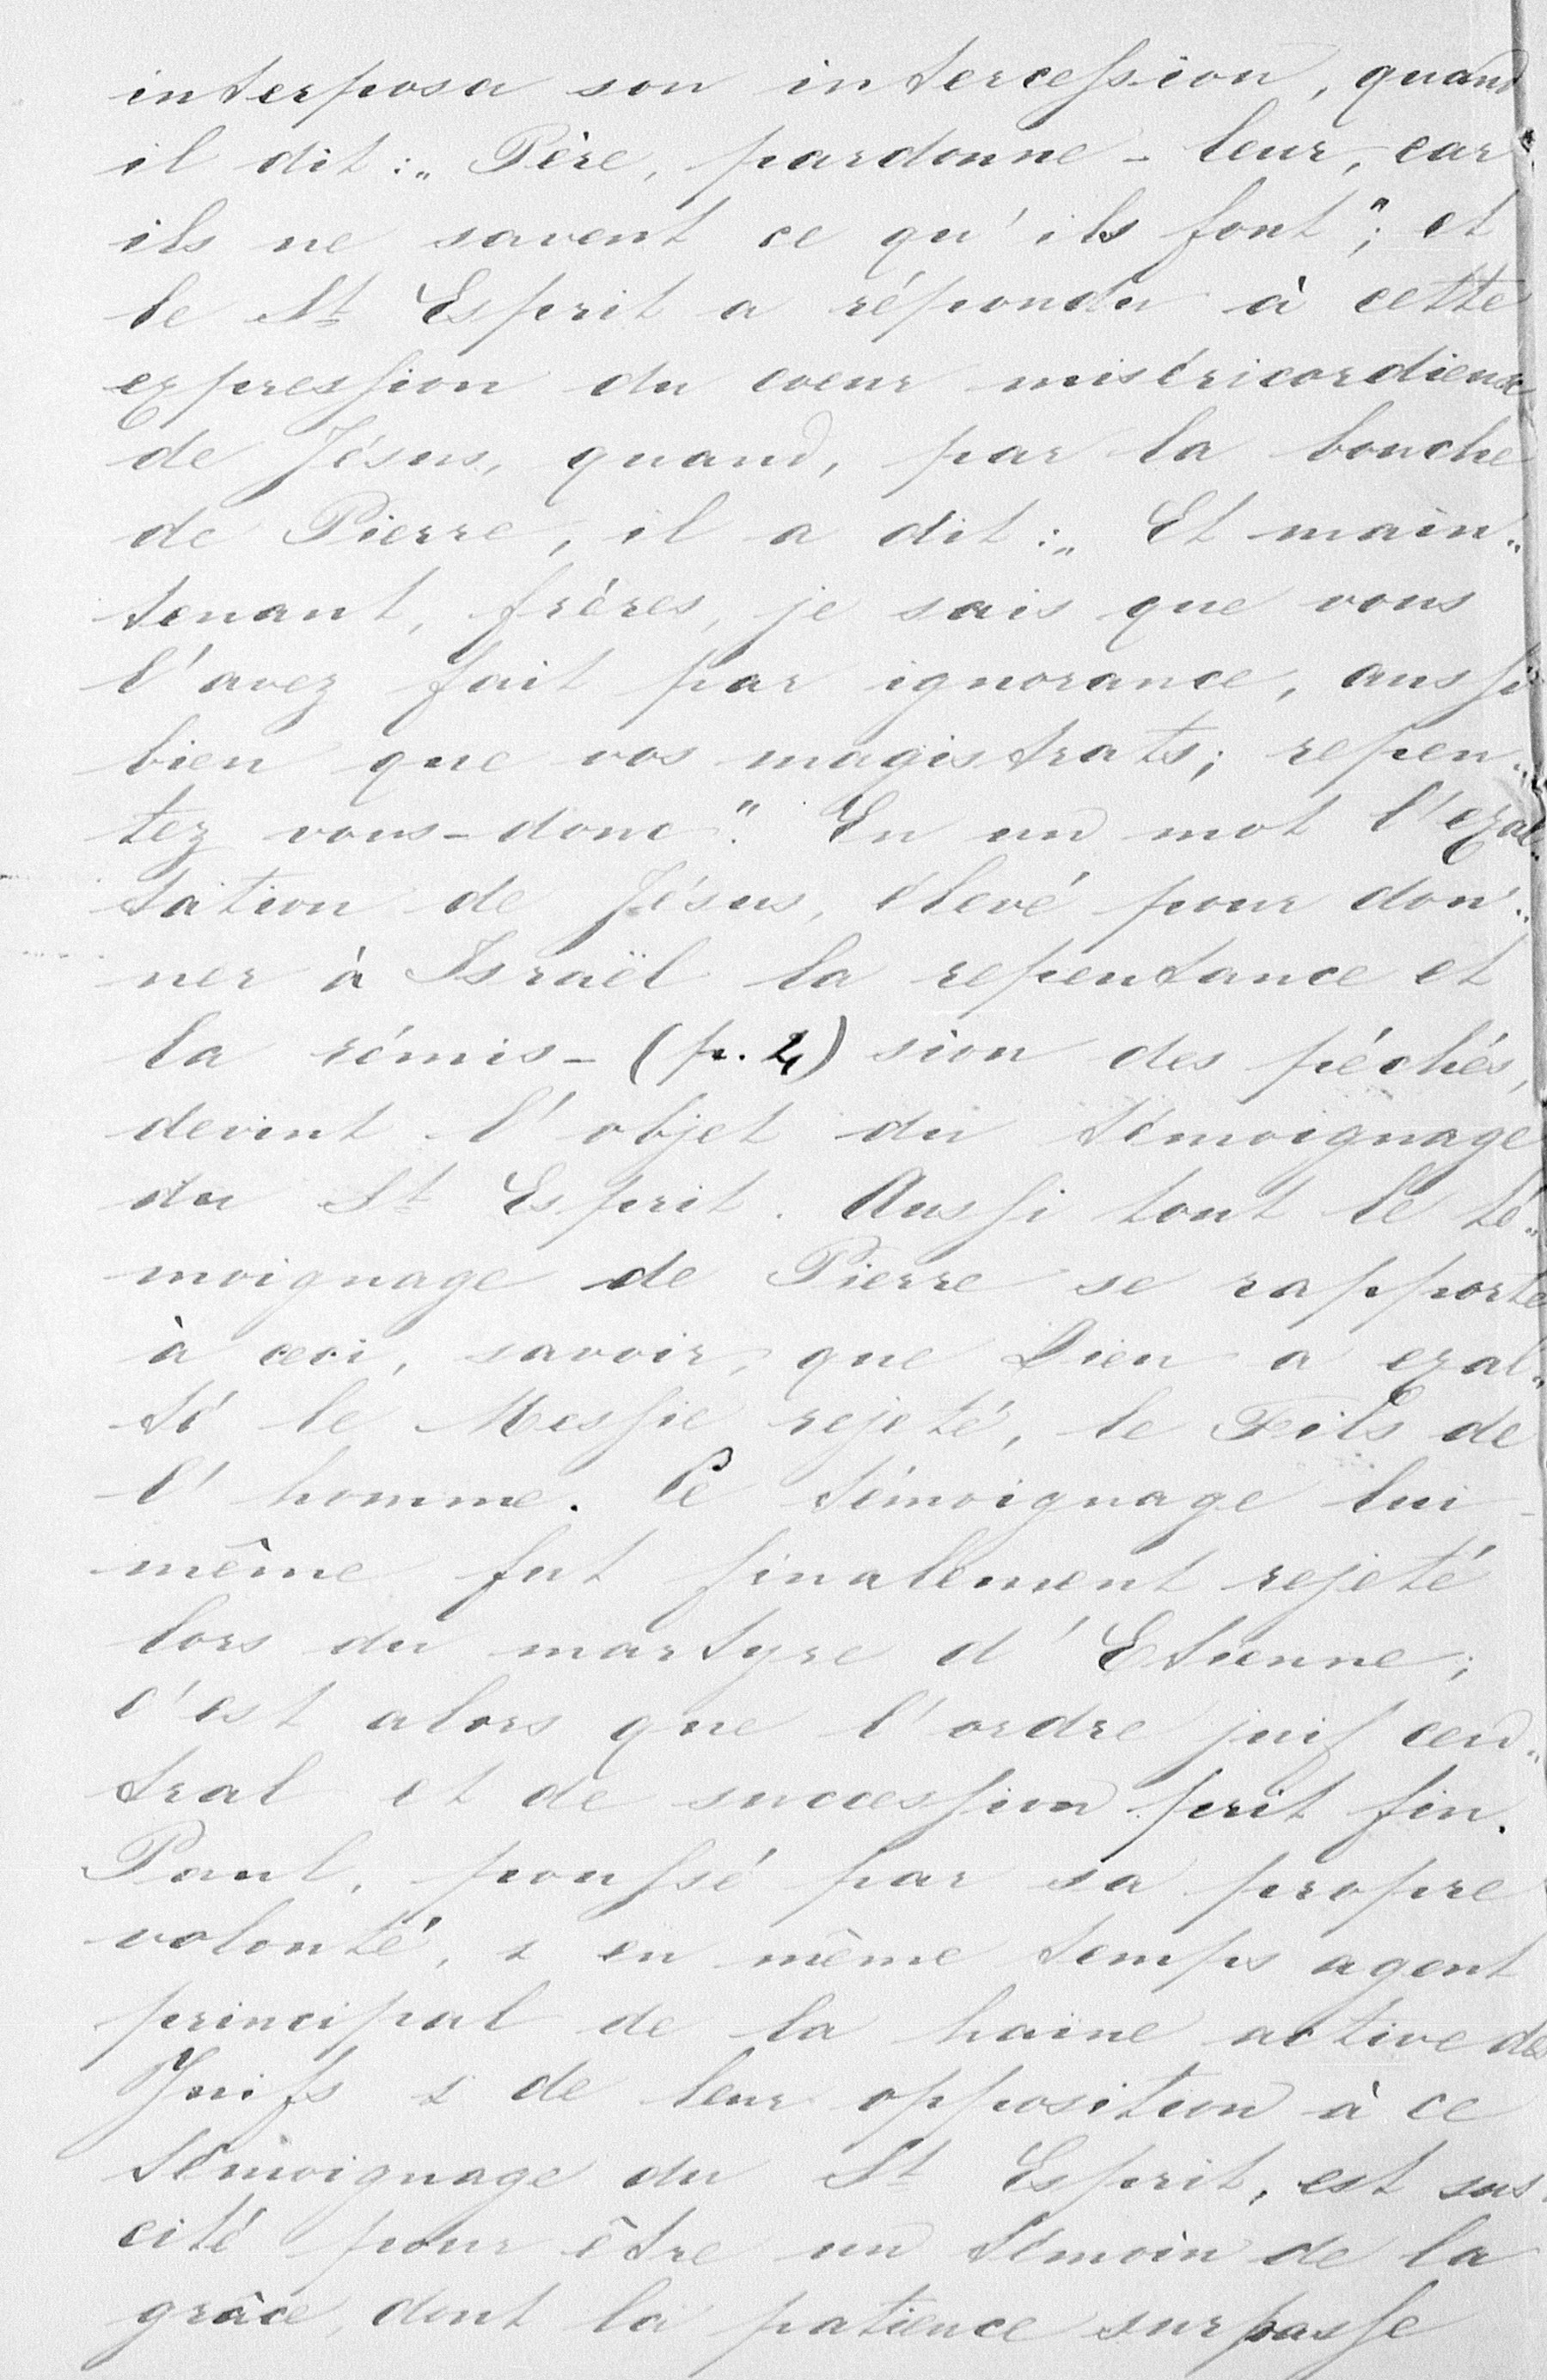 interposa son intercession, quand
il dit : „ Père, pardonne - leur, car
ils ne savent ce qu' ils font "; et
le St Esprit a répondu à cette
expression du coeur miséricordieux
de Jésus, quand, par la bouche
de Pierre, il a dit : „ Et main„
tenant, frères, je sais que vous
l'avez fait par ignorance, aussi
bien que vos magistrats; repen„
tez vous-donc ". En un mot l'exal„
tation de Jésus, élevé pour don„
ner à Israël la repentance et
la rémis- (p. 4) sion des péchés,
devint l' objet du témoignage
du St Esprit. Aussi tout le té„
moignage de Pierre se rapporte
à ceci, savoir, que Dieu a exal„
té le Messie rejeté, le Fils de
l' homme. Ce témoignage lui-
même fut finalement rejeté
lors du martyre d' Etienne;
c'est alors que l'ordre juif cen„
tral et de succession prit fin.
Paul, poussé par sa propre
volonté, & en même temps agent
principal de la haine active des
Juifs & de leur opposition à ce
témoignage du St Esprit, est sus
cité pour être un témoin de la
grâce, dont la patience surpasse